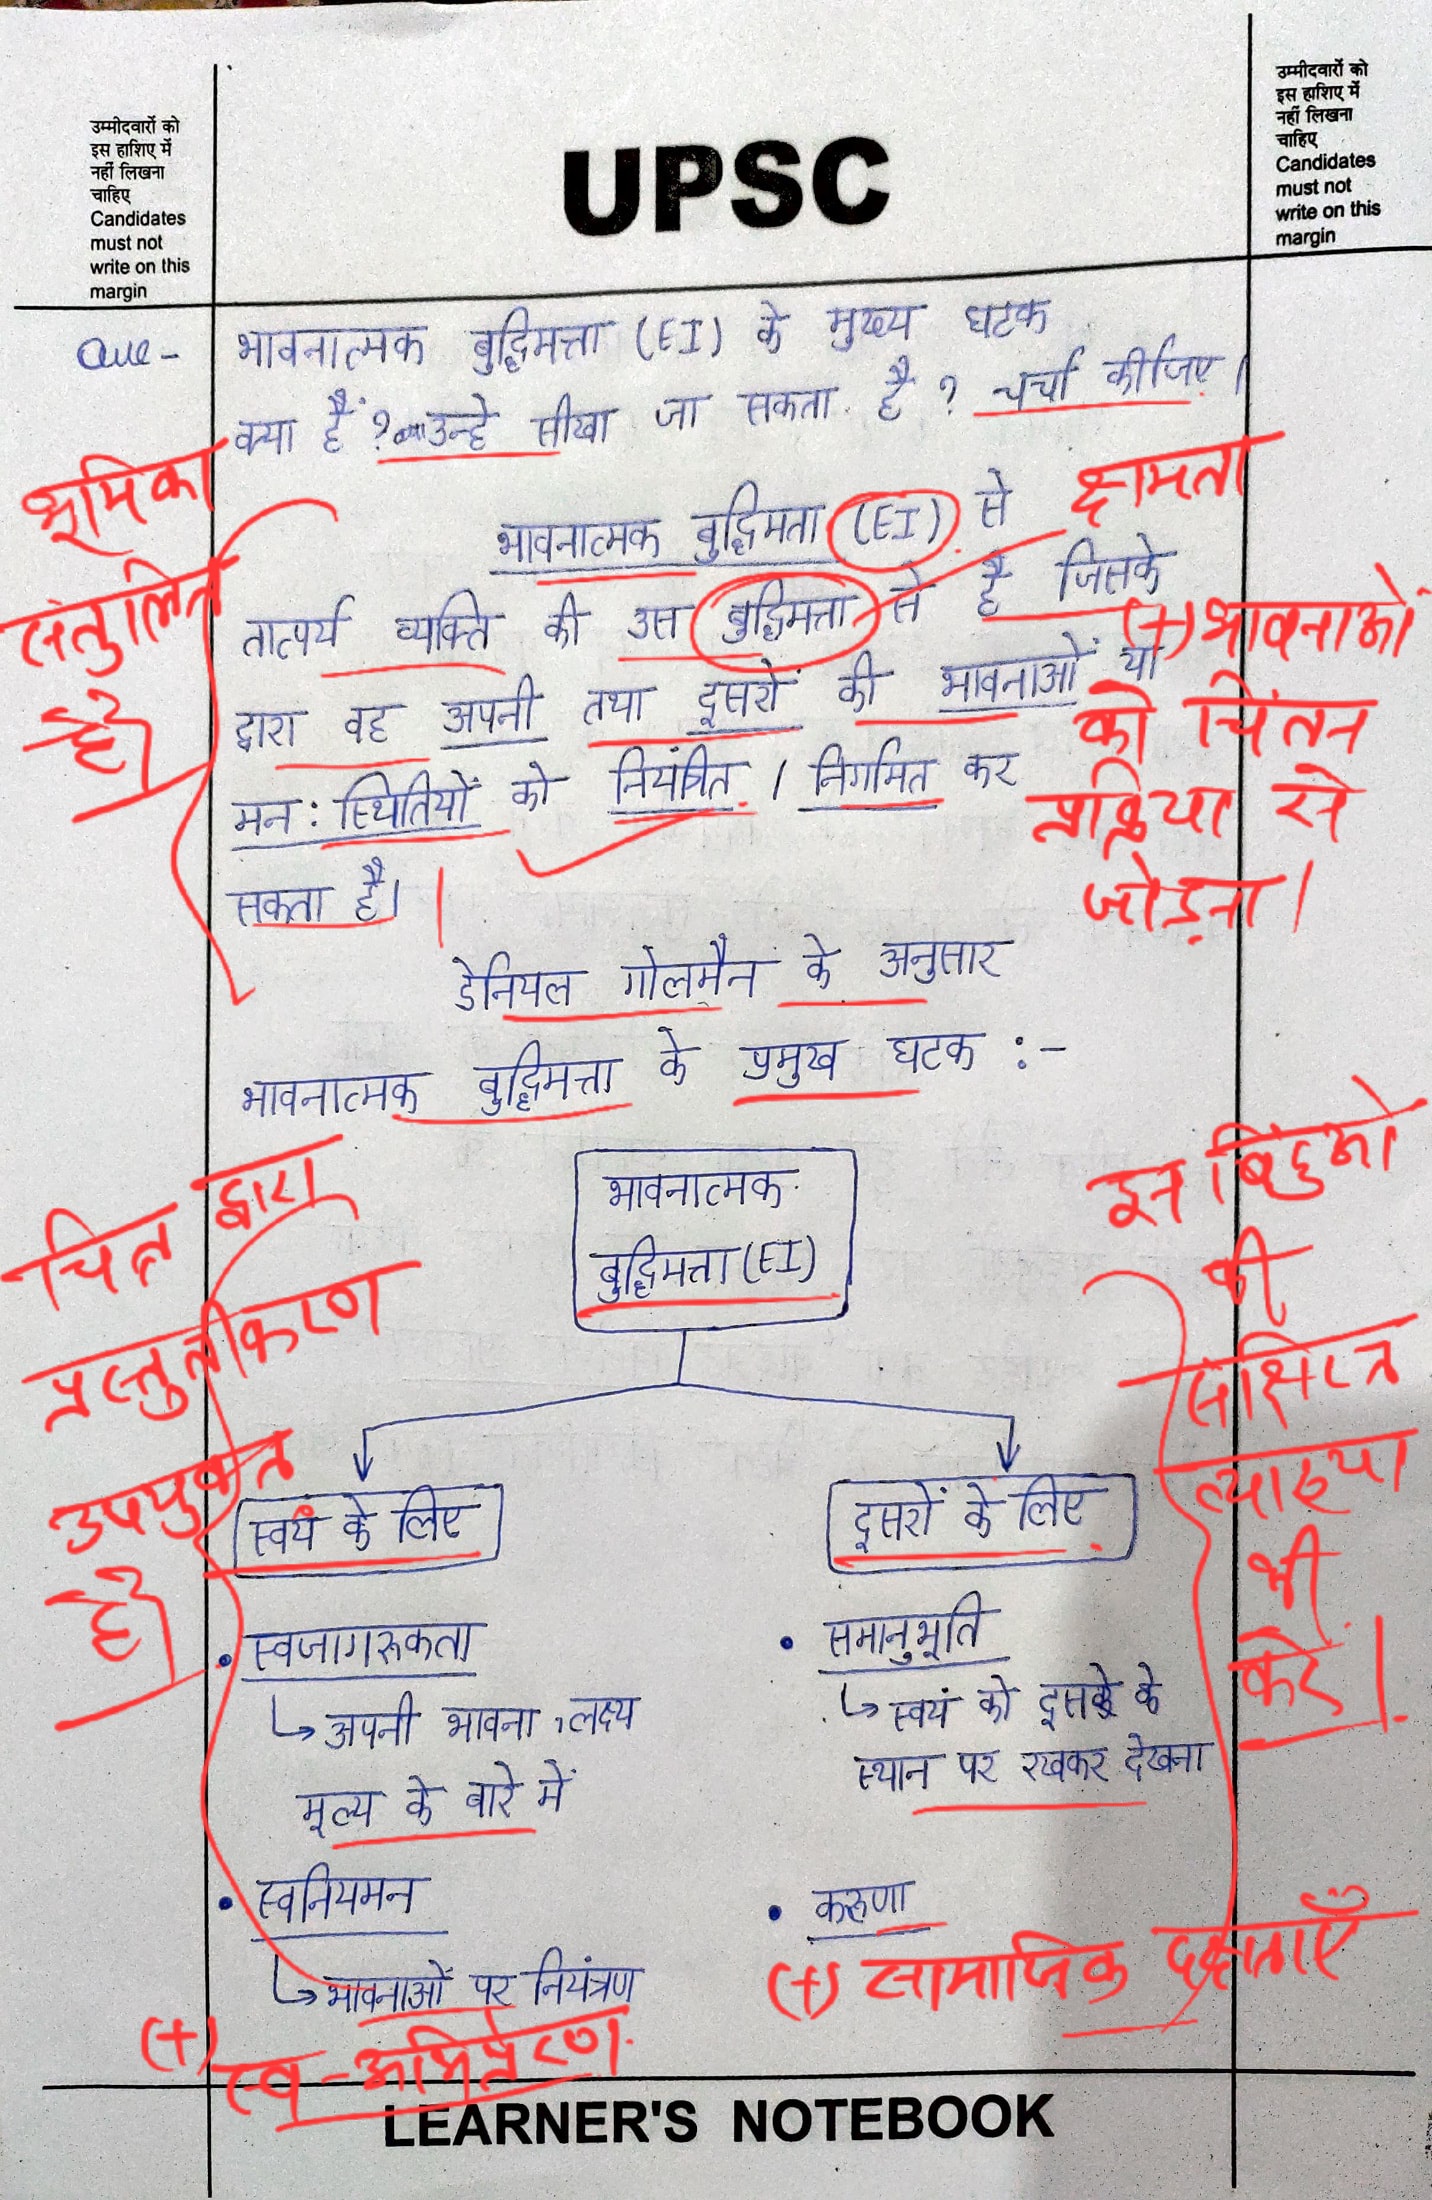 उम्मीदवारों को
इस हाशिए में
नहीं लिखना
चाहिए
Candidates
must not
write on this
margin
UPSC
उम्मीदवारों को
इस हाशिए में
नहीं लिखना
चाहिए
Candidates
must not
write on this
margin
Que - भावनात्मक बुद्धिमत्ता (EI) के मुख्य घटक
क्या हैं ? उन्हे सीखा जा सकता है ? चर्चा कीजिए।
भूमिका
संतुलित
है।
भावनात्मक बुद्धिमता (EI) से
क्षमता
तात्पर्य व्यक्ति की उस बुद्धिमत्ता से है जिसके
द्वारा वह अपनी तथा दूसरों की भावनाओं या
मन: स्थितियों को नियंत्रित / निगमित कर
सकता है।
(+) भावनाओं
को चिंतन
प्रक्रिया से
जोड़ना।
डेनियल गोलमैन के अनुसार
भावनात्मक बुद्धिमत्ता के प्रमुख घटक :-
चित्र द्वारा
प्रस्तुतीकरण
उपयुक्त
है।
भावनात्मक
बुद्धिमत्ता (EI)
इन बिंदुओ
की
संक्षिप्त
व्याख्या
भी
करें।
स्वयं के लिए
दूसरों के लिए
• स्वजागरूकता
↳ अपनी भावना, लक्ष्य
मूल्य के बारे में
• स्वनियमन
↳ भावनाओं पर नियंत्रण
(+) स्व-अभिप्रेरण
• समानुभूति
↳ स्वयं को दूसरे के
स्थान पर रखकर देखना
• करुणा
(+) सामाजिक दक्षताएँ
LEARNER'S NOTEBOOK